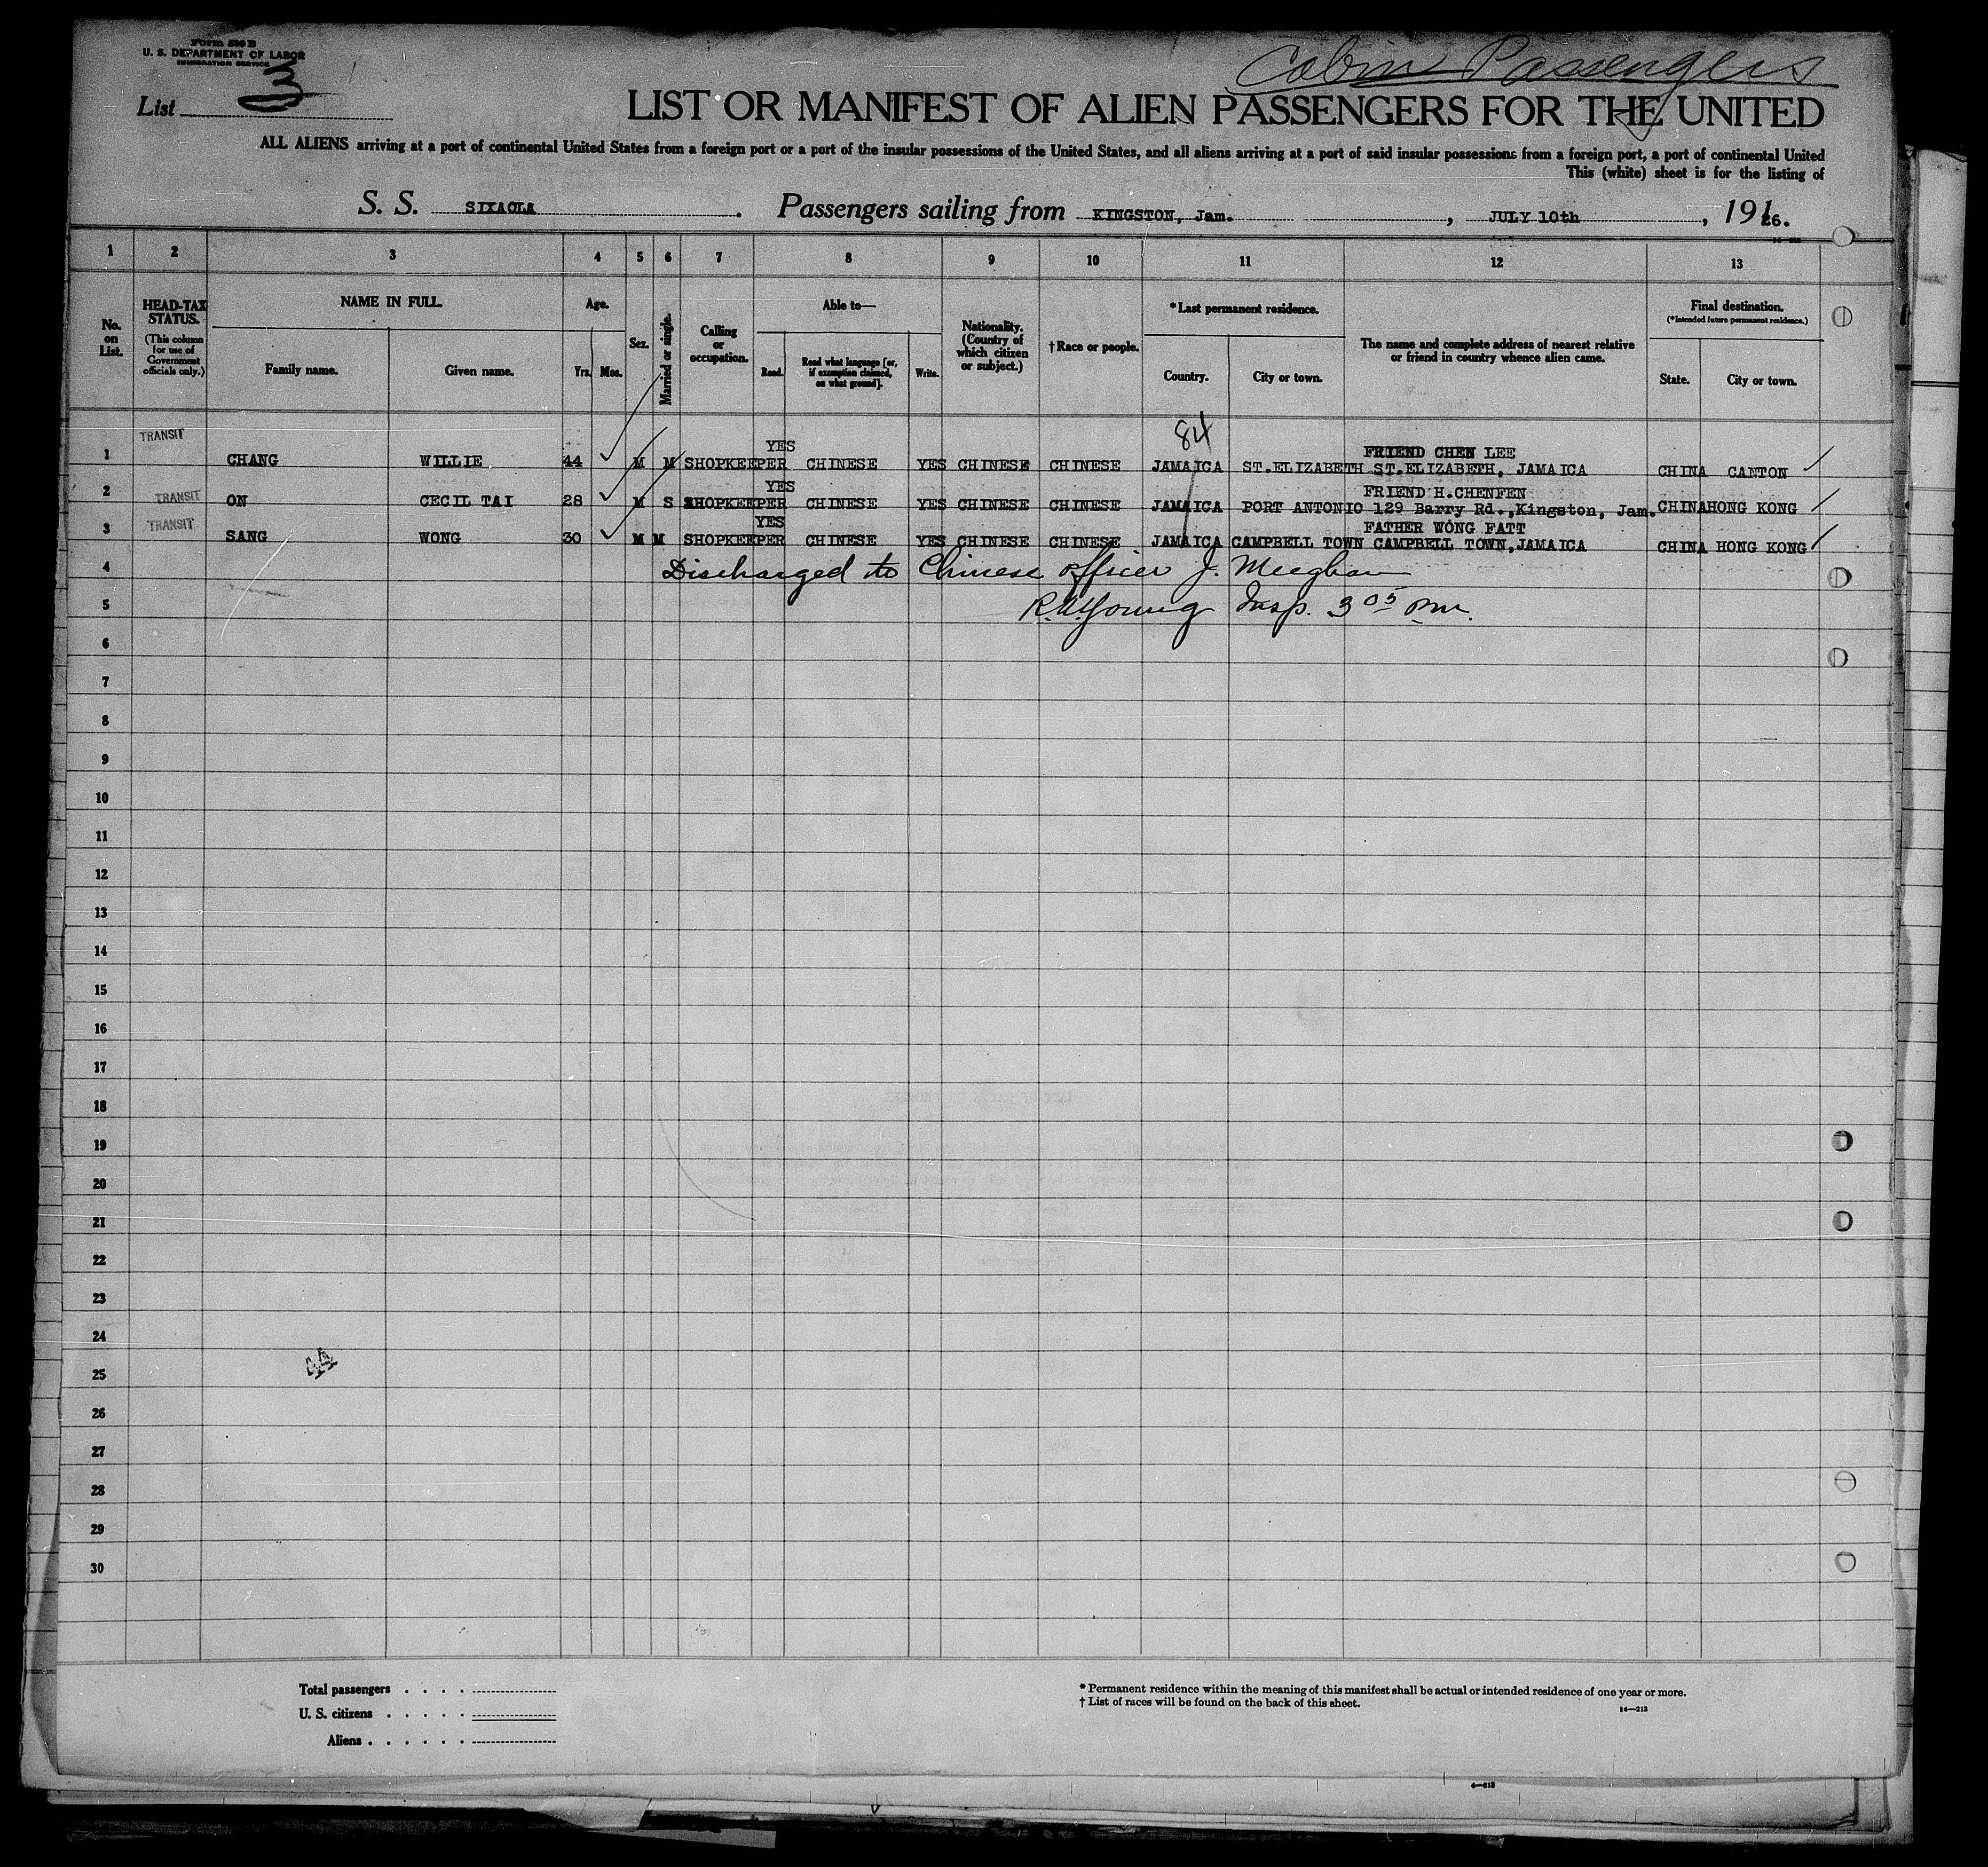 Form 500 B
U. S. DEPARTMENT OF LABOR
IMMIGRATION SERVICE
List 3
Cabin Passengers
LIST OR MANIFEST OF ALIEN PASSENGERS FOR THE UNITED
ALL ALIENS arriving at a port of continental United States from a foreign port or a port of the insular possessions of the United States, and all aliens arriving at a port of said insular possessions from a foreign port, a port of continental United
This (white) sheet is for the listing of
S. S. SIXAOLA. Passengers sailing from KINGSTON, Jam., JULY 10th, 1916.
1 2 3 4 5 6 7 8 9 10 11 12 13
No. on List.
HEAD-TAX STATUS. (This column for use of Government officials only.)
NAME IN FULL.
Family name. Given name.
Age.
Yrs. Mos.
Sex.
Married or single.
Calling or occupation.
Able to—
Read. Read what language [or, if exemption claimed, on what ground]. Write.
Nationality. (Country of which citizen or subject.)
†Race or people.
*Last permanent residence.
Country. City or town.
The name and complete address of nearest relative or friend in country whence alien came.
Final destination.
(*Intended future permanent residence.)
State. City or town.
84
1 TRANSIT CHANG WILLIE 44 M M SHOPKEEPER YES CHINESE YES CHINESE CHINESE JAMAICA ST.ELIZABETH FRIEND CHEN LEE ST.ELIZABETH, JAMAICA CHINA CANTON
2 TRANSIT ON CECIL TAI 28 M S SHOPKEEPER YES CHINESE YES CHINESE CHINESE JAMAICA PORT ANTONIO FRIEND H.CHENFEN 129 Barry Rd.,Kingston, Jam. CHINA HONG KONG
3 TRANSIT SANG WONG 30 M M SHOPKEEPER YES CHINESE YES CHINESE CHINESE JAMAICA CAMPBELL TOWN FATHER WONG FATT CAMPBELL TOWN,JAMAICA CHINA HONG KONG
4 Discharged to Chinese officer J. Meeghan
5 R.W.Young Insp. 3 05 pm.
6
7
8
9
10
11
12
13
14
15
16
17
18
19
20
21
22
23
24
25
26
27
28
29
30
44
Total passengers . . . .
U. S. citizens . . . . .
Aliens . . . . . .
* Permanent residence within the meaning of this manifest shall be actual or intended residence of one year or more.
† List of races will be found on the back of this sheet.
14—213